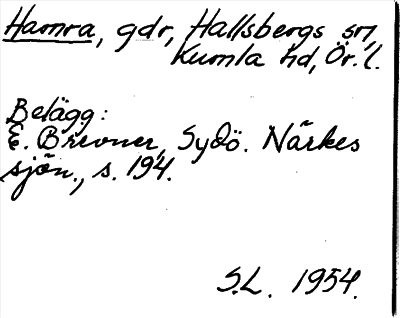 Hamra, gdr, Hallsbergs sn,
Kumla hd, Ör. l.
Belägg:
E. Brevner, Sydö. Närkes
sjön., s. 194.
S.L. 1954.